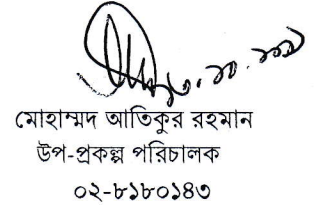 মোহাম্মদ আতিকুর রহমান
উপ-প্রকল্প পরিচালক
০২-৮১৮০১৪৩